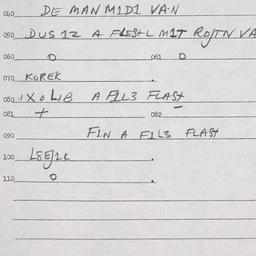 060 DE MAN M1D1 VA·N
050 DUS 12 A FLESTL M1T ROJTN VA
060 O 061 O
070 KOREK .
080 1 X O L1B A F1L3 FLAST
081 + 082 –
090 FIN A F1L3 FLAST
100 L8EJ1K .
110 O .